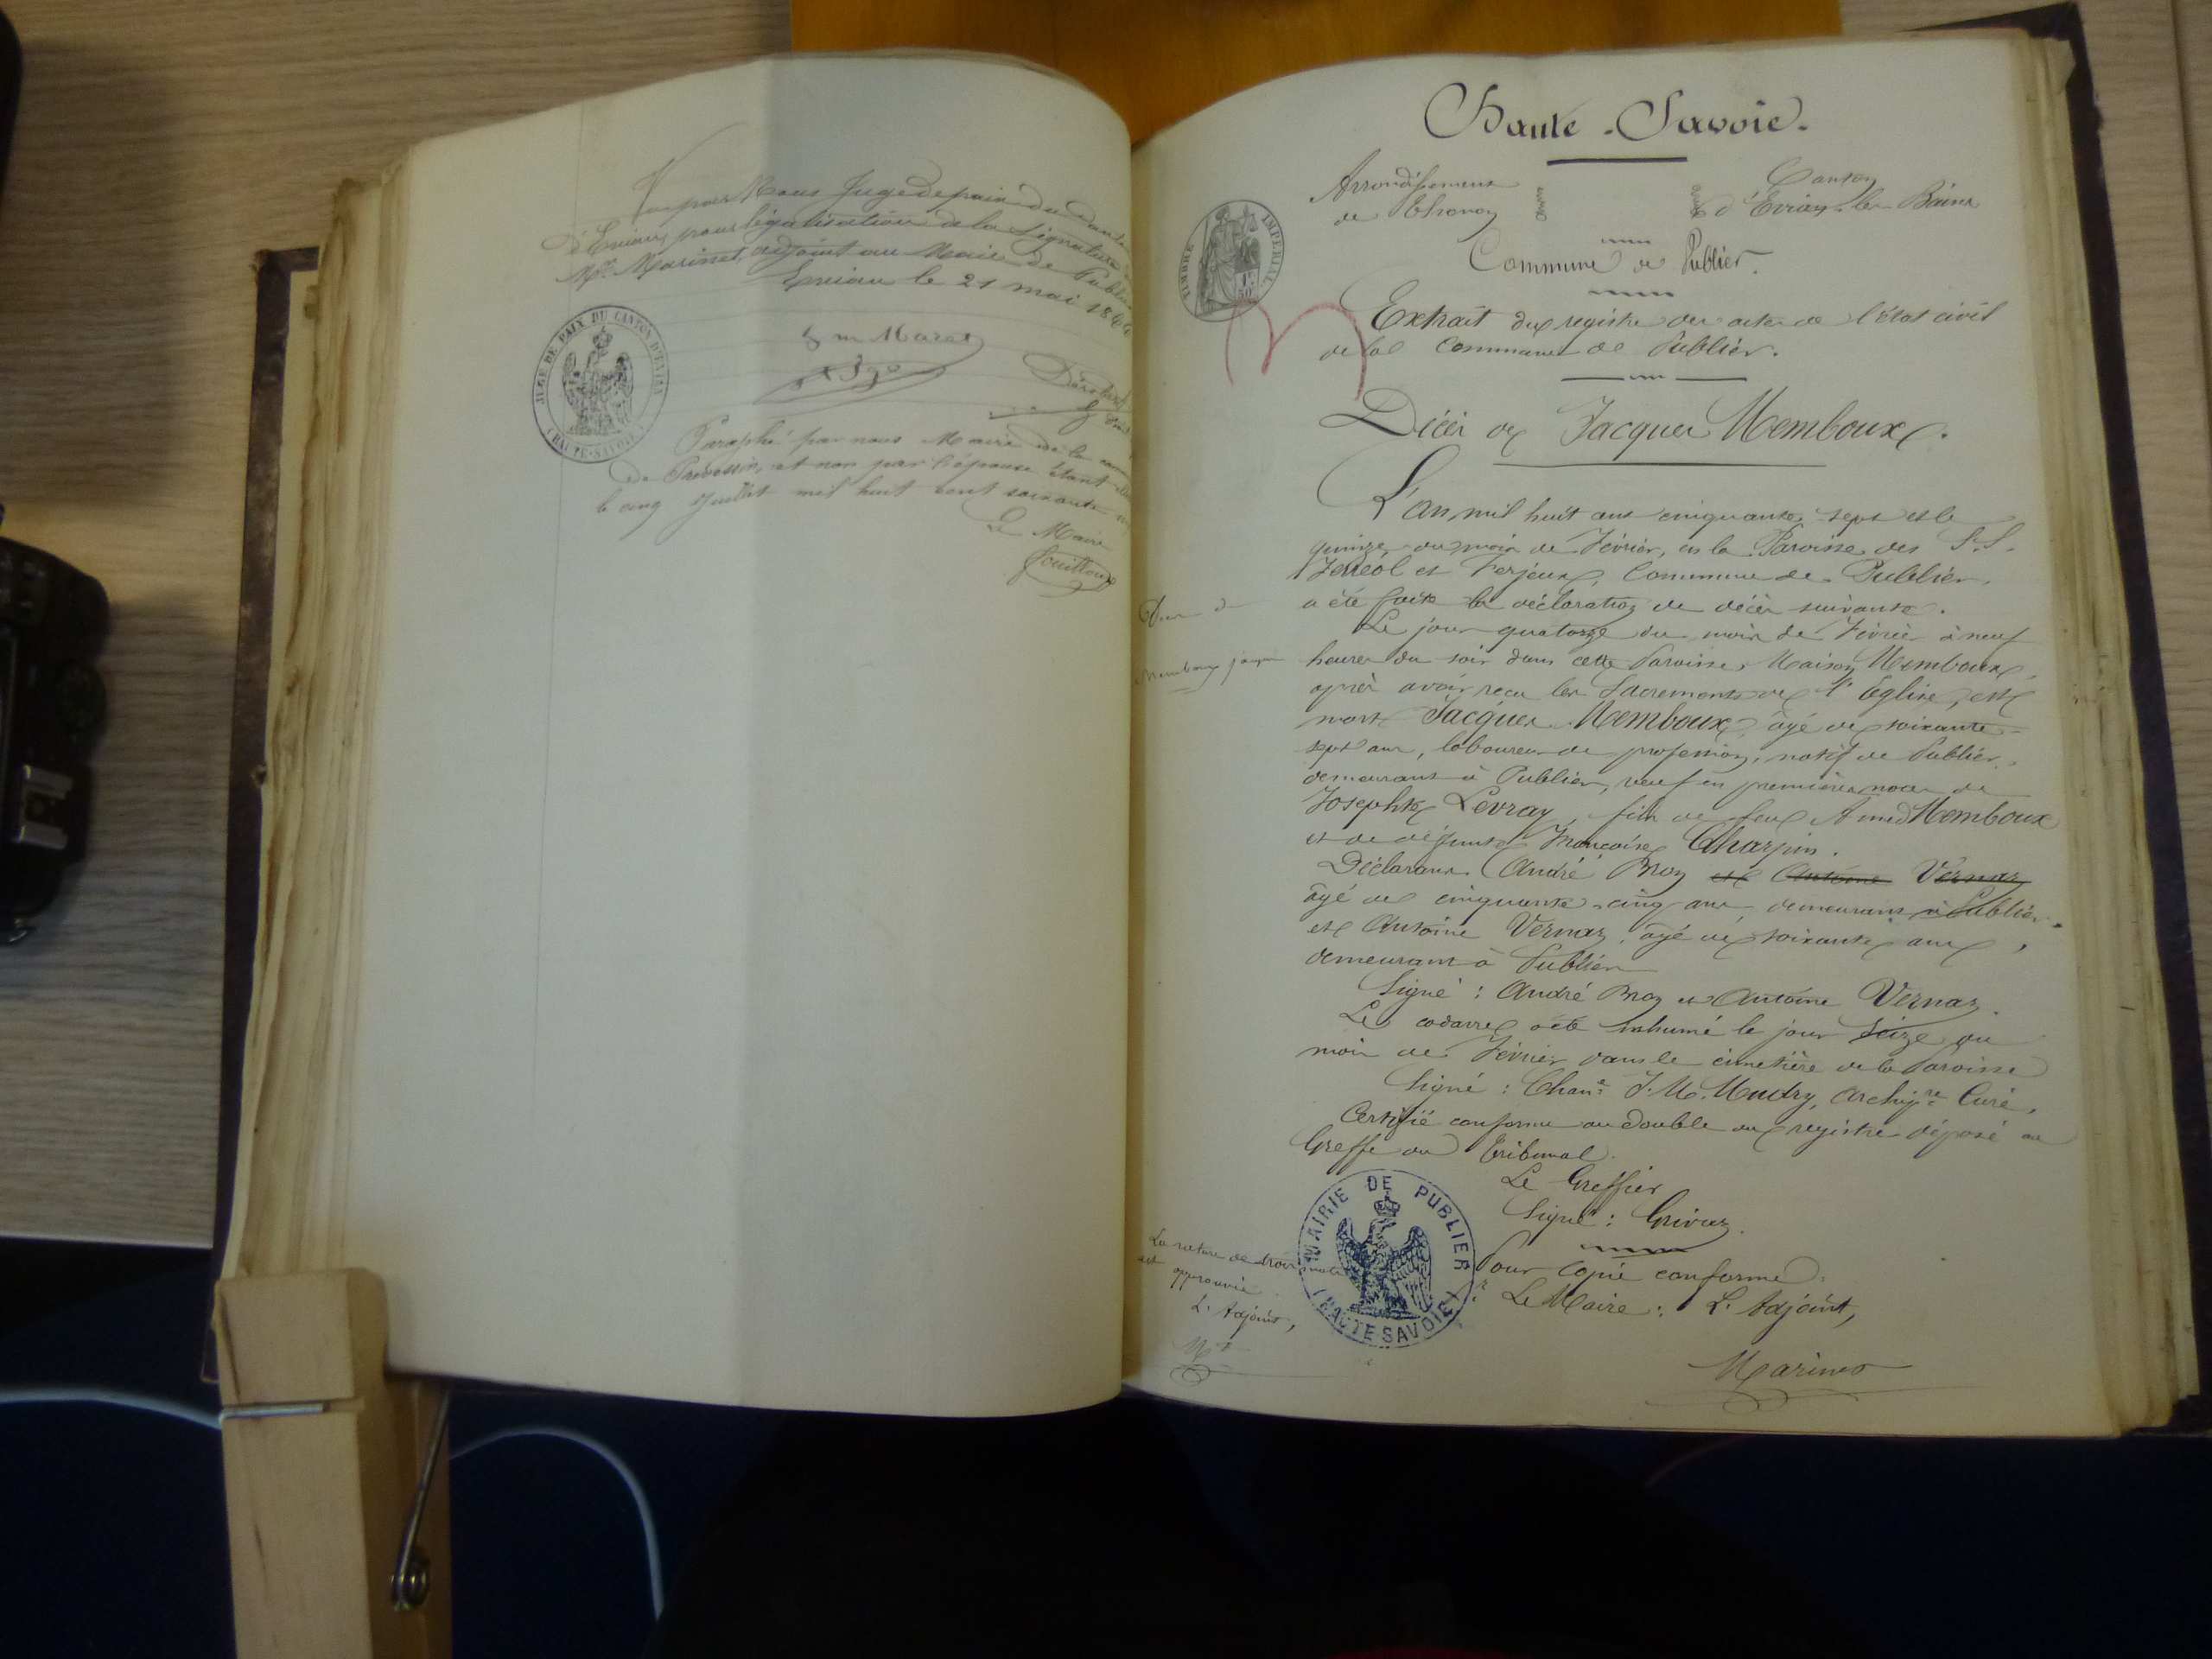 Vu par Nous Juge de paix du canton
d'Evian, pour légalisation de la signature
Mr Marinet, adjoint au Maire de Publier
Evian le 21 mai 1866
JUGE DE PAIX DU CANTON D'EVIAN
(HAUTE-SAVOIE)
Paraphé par nous Maire de la
de Prévessin, et non par l'épouse étant
le cinq Juillet mil huit cent soixante
Le Maire
Fouilloux
Haute-Savoie.
Arrondissement
de Thonon
Canton
d'Évian-les-Bains
TIMBRE IMPERIAL
1F
50
Commune de Publier.
Extrait du registre des actes de l'état civil
de la Commune de Publier.
Décès de Jacques Memboux.
L'an mil huit cent cinquante-sept et le
quinze du mois de Février, en la Paroisse des S.S.
Ferréol et Ferjeux, Commune de Publier,
a été faite la déclaration de décès suivante.
Le jour quatorze du mois de Février à neuf
heures du soir dans cette Paroisse, Maison Memboux,
après avoir reçu les Sacrements de l'Église, est
mort Jacques Memboux, âgé de soixante-
sept ans, laboureur de profession, natif de Publier,
demeurant à Publier, veuf en premières noces de
Josephte Levray, fils de feu Amed Memboux
et de défunte Françoise Charpin.
Déclarants André Broy et Antoine Vernaz
âgé de cinquante-cinq ans, demeurant à Publier
et Antoine Vernaz, âgé de soixante ans,
demeurant à Publier
Signé : André Broy et Antoine Vernaz.
Le cadavre a été inhumé le jour seize du
mois de Février dans le cimetière de la Paroisse
Signé : Chane J. M. Mudry, Archiprre Curé.
Certifié conforme au double du registre déposé au
Greffe du Tribunal.
Le Greffier
Signé : Grivaz.
Pour copie conforme :
Pr Le Maire : L'Adjoint,
Marinet
MAIRIE DE PUBLIER
(HAUTE SAVOIE)
Memboux jacques
La rature de trois mots
est approuvée
L'Adjoint,